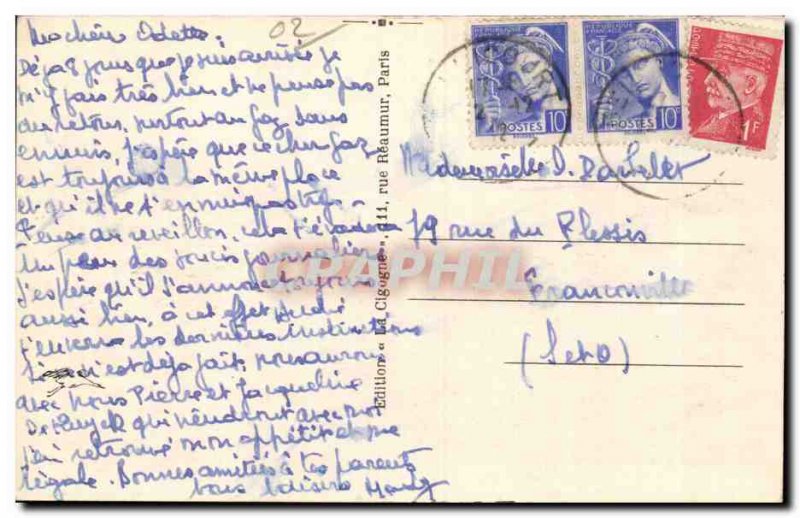 02
Ma chère Odette.
Déjà 8 jours que je suis arrivée je
m'y fais très bien et ne pense pas
au retour, surtout au gaz sans
ennuis, j'espère que ce cher gaz
est toujours à la même place
et qu'il ne t'ennuie pas trop
Pense au reveillon, cela t'évadera
un peu des soucis journaliers
J'espère qu'il s'annonce toujours
aussi bien, à cet effet
j'enverrai les dernières instructions
si ce n'est déjà fait, nous aurons
avec nous Pierre et Jacqueline
qui viendront avec moi
j'ai retrouvé mon appétit et me
régale. Bonnes amitiés à tes parents
bons baisers
Edition « La Cigogne », 111, rue Réaumur, Paris
REPUBLIQUE FRANÇAISE
POSTES 10c
REPUBLIQUE FRANÇAISE
POSTES 10c
1F
Mademoiselle O.
19 rue du Plessis
Franconville
(S et O)
CPAPHIL